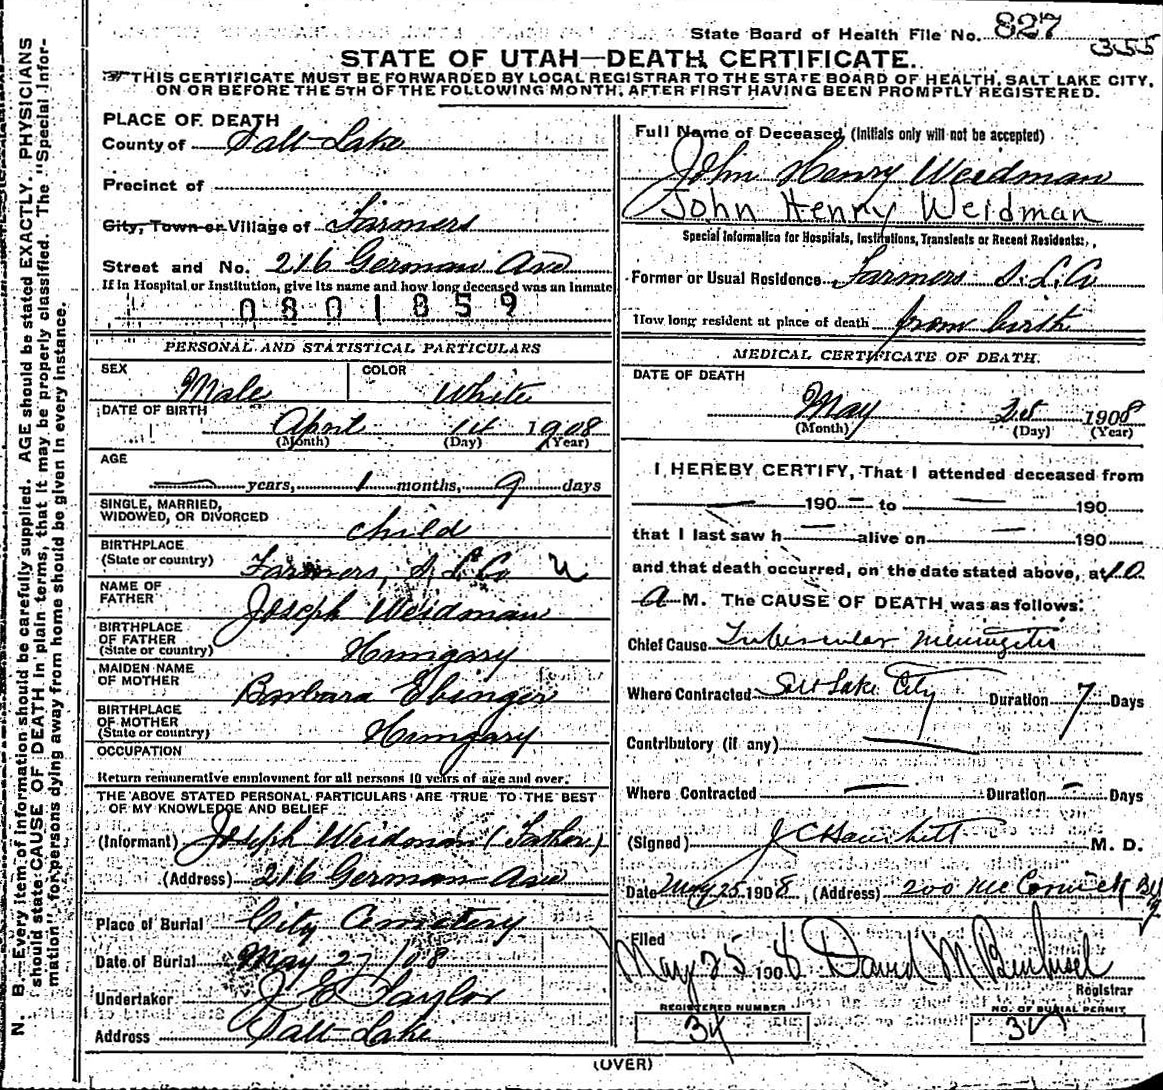 State Board of Health File No. 827
355
STATE OF UTAH—DEATH CERTIFICATE.
THIS CERTIFICATE MUST BE FORWARDED BY LOCAL REGISTRAR TO THE STATE BOARD OF HEALTH, SALT LAKE CITY,
ON OR BEFORE THE 5TH OF THE FOLLOWING MONTH, AFTER FIRST HAVING BEEN PROMPTLY REGISTERED.
PLACE OF DEATH
County of Salt Lake
Precinct of
City, Town or Village of Farmers
Street and No. 216 German Ave
If in Hospital or Institution, give its name and how long deceased was an inmate
0801859
PERSONAL AND STATISTICAL PARTICULARS
SEX Male
COLOR White
DATE OF BIRTH April 14 1908
(Month) (Day) (Year)
AGE
— years, 1 months, 9 days
SINGLE, MARRIED,
WIDOWED, OR DIVORCED child
BIRTHPLACE
(State or country) Farmers, S. L. Co U
NAME OF
FATHER Joseph Weidman
BIRTHPLACE
OF FATHER
(State or country) Hungary
MAIDEN NAME
OF MOTHER Barbara Ebinger
BIRTHPLACE
OF MOTHER
(State or country) Hungary
OCCUPATION
Return remunerative employment for all persons 10 years of age and over.
THE ABOVE STATED PERSONAL PARTICULARS ARE TRUE TO THE BEST
OF MY KNOWLEDGE AND BELIEF
(Informant) Joseph Weidman (Father)
(Address) 216 German Ave
Place of Burial City Cemetery
Date of Burial May 27/08
Undertaker J E Taylor
Address Salt Lake
Full Name of Deceased (Initials only will not be accepted)
John Henry Weidman
John Henry Weidman
Special Information for Hospitals, Institutions, Transients or Recent Residents:
Former or Usual Residence Farmers S. L. Co
How long resident at place of death from birth
MEDICAL CERTIFICATE OF DEATH.
DATE OF DEATH
May 1908
(Month) (Day) (Year)
I HEREBY CERTIFY, That I attended deceased from
— 190 — to — 190
that I last saw h — alive on — 190
and that death occurred, on the date stated above, at 10
A M. The CAUSE OF DEATH was as follows:
Chief Cause Tubercular meningitis
Where Contracted Salt Lake City Duration 7 Days
Contributory (if any) —
Where Contracted — Duration — Days
(Signed) J C M. D.
Date May 25 1908 (Address) 200 McCornick Bldg
Filed
May 25 1908 David M.
Registrar
REGISTERED NUMBER
34
NO. OF BURIAL PERMIT
(OVER)
N. B.—Every item of information should be carefully supplied. AGE should be stated EXACTLY. PHYSICIANS
should state CAUSE OF DEATH in plain terms, that it may be properly classified. The "Special Infor-
mation" for persons dying away from home should be given in every instance.